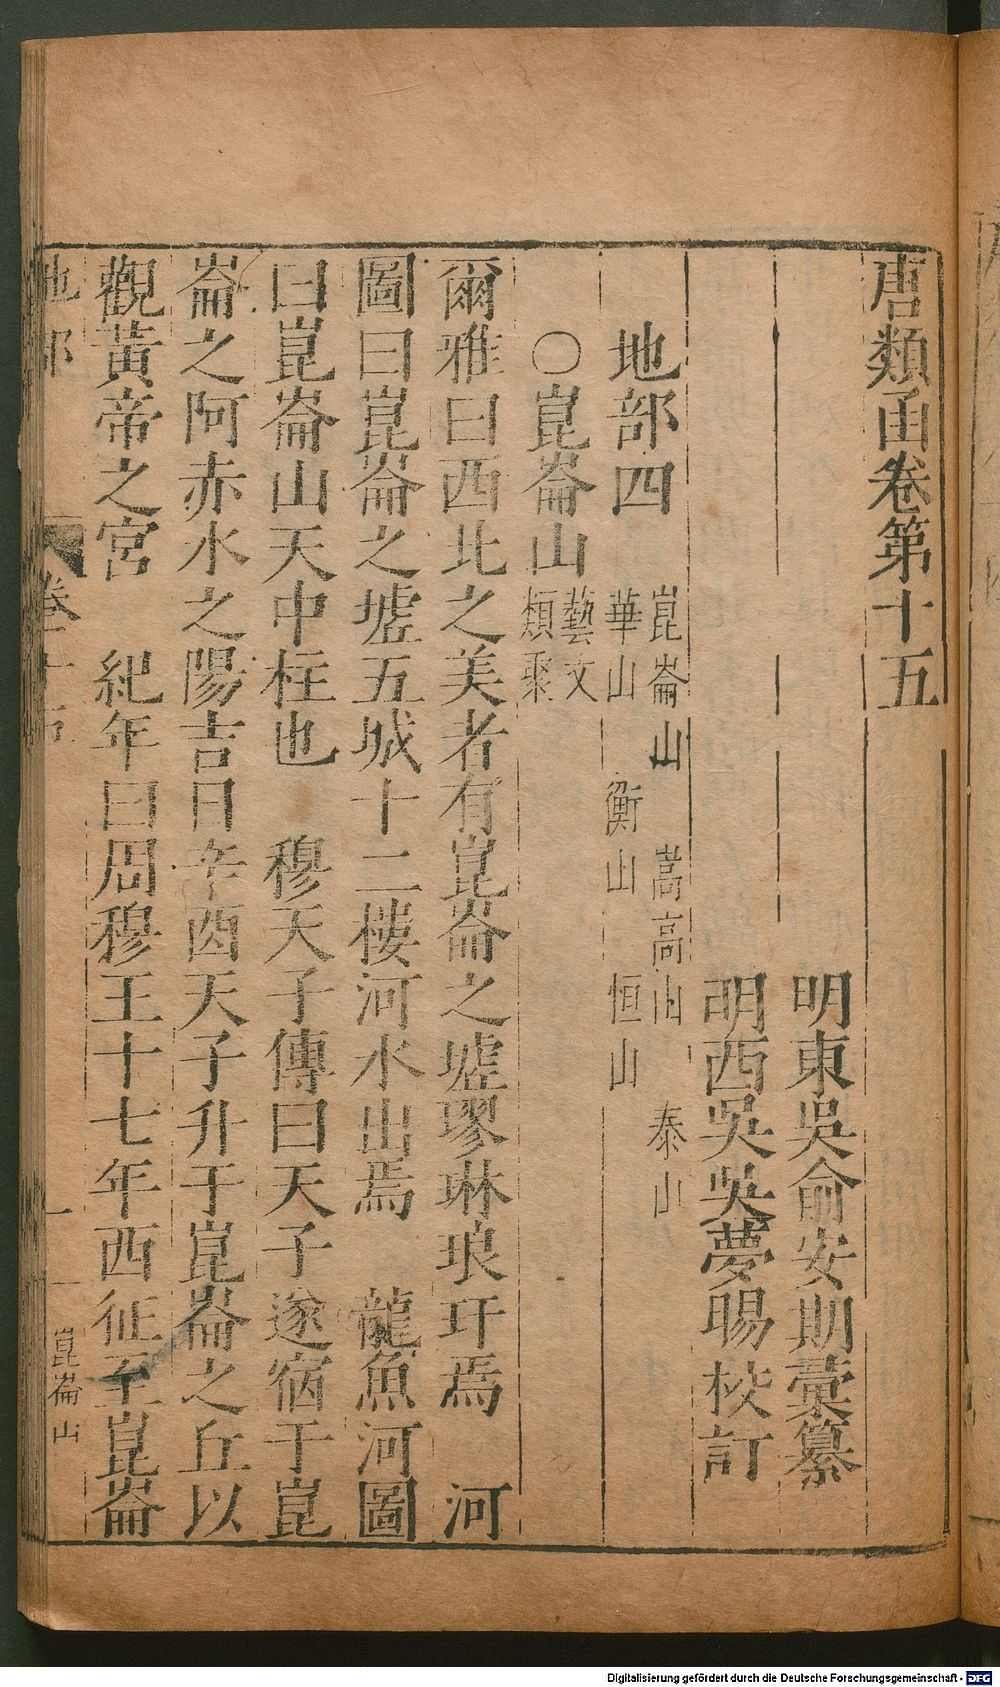 唐類函卷第十五
明東吳俞安期彙纂
明西吳吳夢暘校訂
地部四
崑崙山 嵩高山 泰山
華山 衡山 恒山
〇崑崙山 藝文類聚
爾雅曰西北之美者有崑崙之墟璆琳琅玕焉 河
圖曰崑崙之墟五城十二樓河水出焉 龍魚河圖
曰崑崙山天中柱也 穆天子傳曰天子遂宿于崑
崙之阿赤水之陽吉日辛酉天子升于崑崙之丘以
觀黃帝之宮 紀年曰周穆王十七年西征至崑崙
地部 卷十五 一 崑崙山
Digitalisierung gefördert durch die Deutsche Forschungsgemeinschaft - DFG